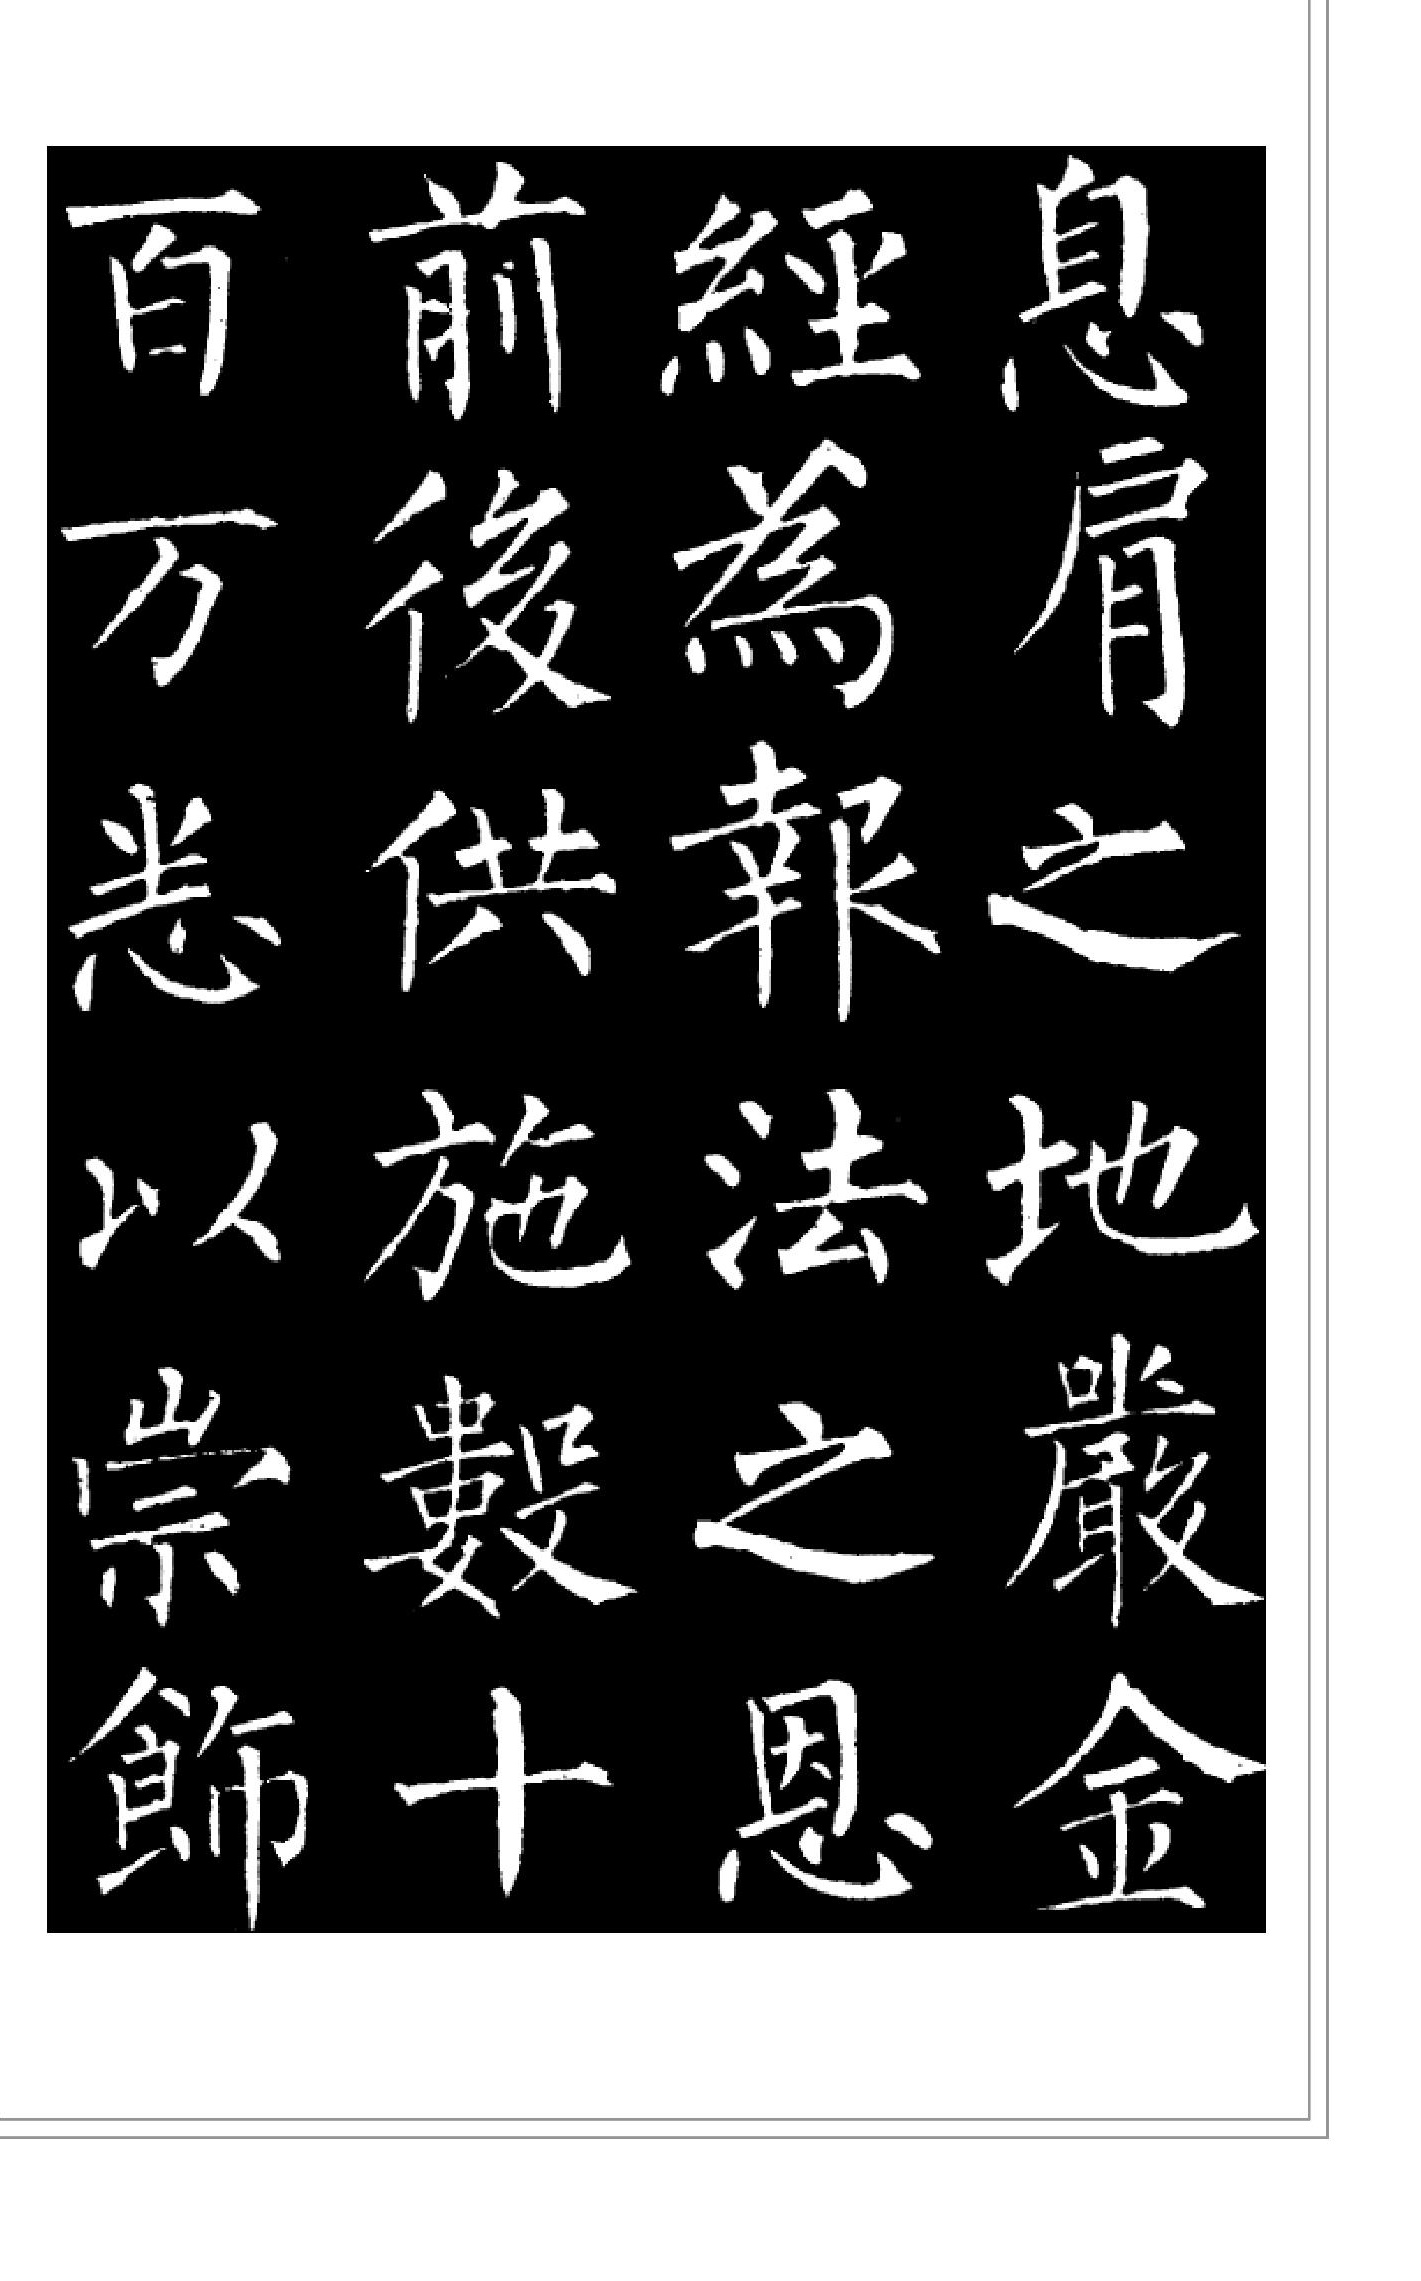 息肩之地嚴金
經為報法之恩
前後供施數十
百万悉以崇飾